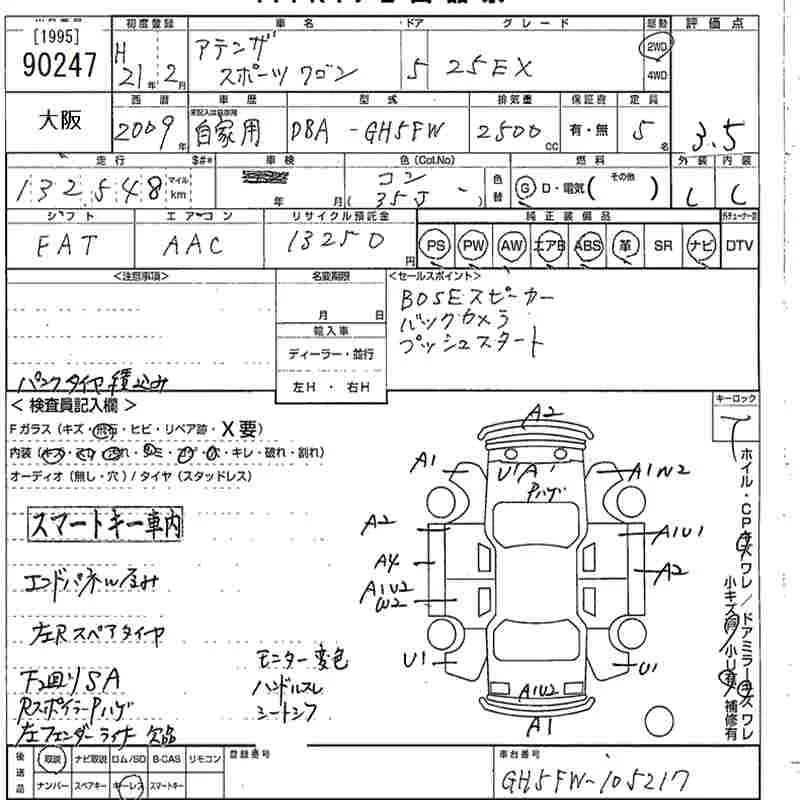 [1995]
90247
大阪
初度登録
H
21年 2月
車名
アテンザ
スポーツワゴン
ドア
5
グレード
25EX
駆動
2WD
4WD
評価点
3.5
西暦
2009年
車歴
自家用
型式
DBA -GH5FW
排気量
2500cc
保証書
有・無
定員
5名
外装 内装
C C
走行
$#*
132,548
マイル
km
車検
年 月
色(Col.No)
コン
( 35J )
色替
燃料
G D・電気( その他 )
シフト
FAT
エアーコン
AAC
リサイクル預託金
13250円
純正装備品
PS PW AW エアB ABS 革 SR ナビ DTV
<注意事項>
パンクタイヤ積込み
名変期限
月 日
輸入車
ディーラー・並行
左H・右H
<セールスポイント>
BOSEスピーカー
バックカメラ
プッシュスタート
<検査員記入欄>
Fガラス(キズ・飛石・ヒビ・リペア跡・X要)
オーディオ(無し・穴)/タイヤ(スタッドレス)
スマートキー車内
エンドパネル歪み
左Rスペアタイヤ
下回りSA
Rスポイラー Pハゲ
左フェンダーライナ 欠品
モニター変色
ハンドルスレ
シートシワ
キーロック
A2
A1
U1 A1
Pハゲ
A1U2
A2
A1U1
A4
A2
A1U2
W2
U1
U1
A1U2
A1
ホイル・CPキズワレ/ドアミラーキズワレ
後送品
取説 ナビ取説 ロム/SD B-CAS リモコン
ナンバー スペアキー キーレス スマートキー
登録番号
車台番号
GH5FW-105217